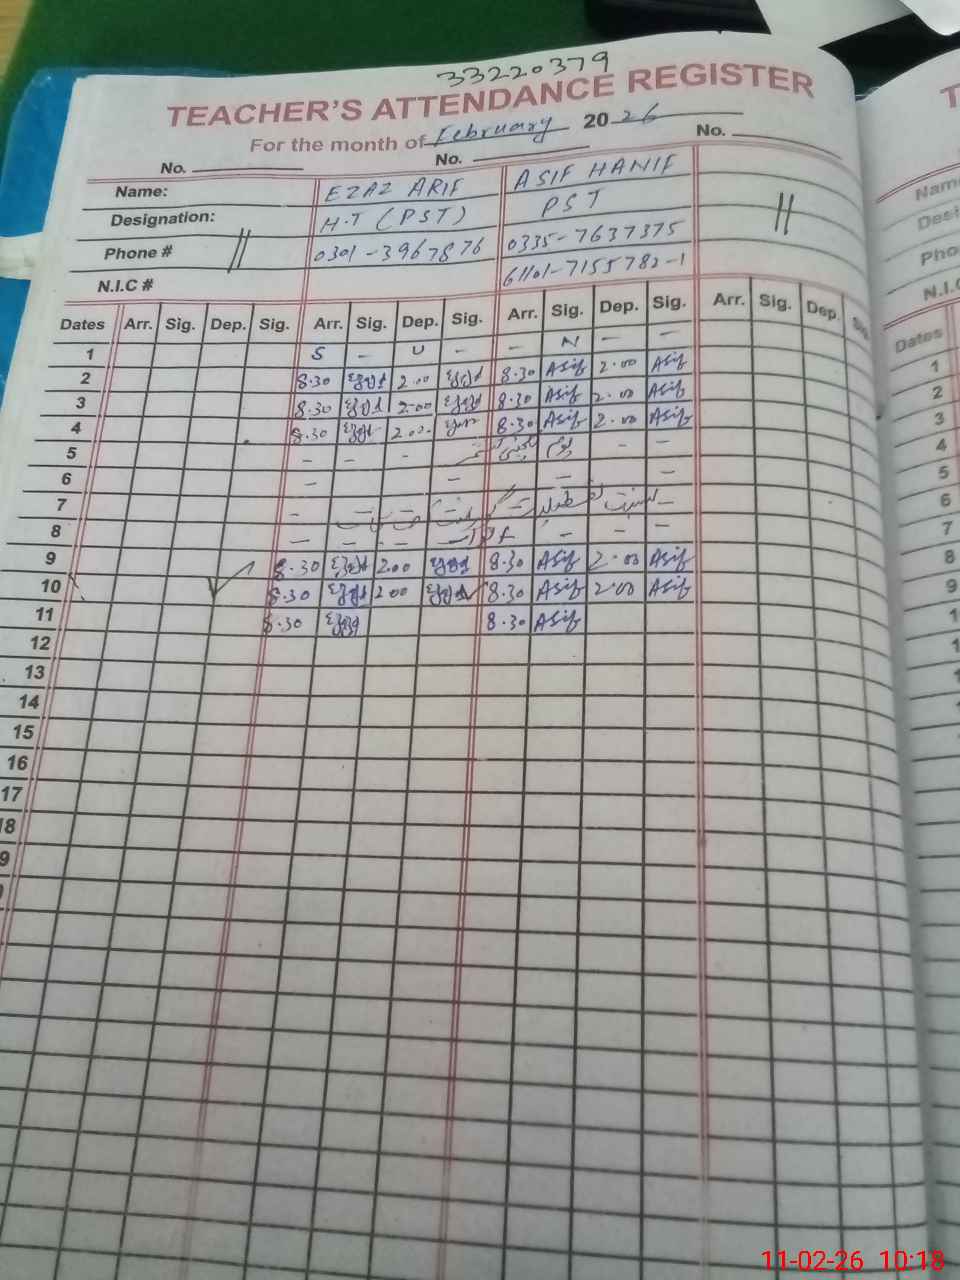 33220379
TEACHER'S ATTENDANCE REGISTER
For the month of February 2026
No. No. No.
Name: EZAZ ARIF ASIF HANIF
Designation: H.T (PST) PST
Phone # 0301-3967876 0335-7637375
N.I.C # 61101-7155782-1
Dates Arr. Sig. Dep. Sig. Arr. Sig. Dep. Sig. Arr. Sig. Dep. Sig. Arr. Sig. Dep. Sig.
1 S - U - - N - -
2 8.30 2.00 8.30 Asif 2.00 Asif
3 8.30 2.00 8.30 Asif 2.00 Asif
4 8.30 2.00 8.30 Asif 2.00 Asif
5 - - - یوم - -
6 - - - -
7 - -
8 - - - - - - -
9 8.30 2.00 8.30 Asif 2.00 Asif
10 8.30 2.00 8.30 Asif 2.00 Asif
11 8.30 8.30 Asif
12
13
14
15
16
17
18
9
Name
Phone
N.I.C
Dates
1
2
3
4
5
6
7
8
9
11-02-26 10:18